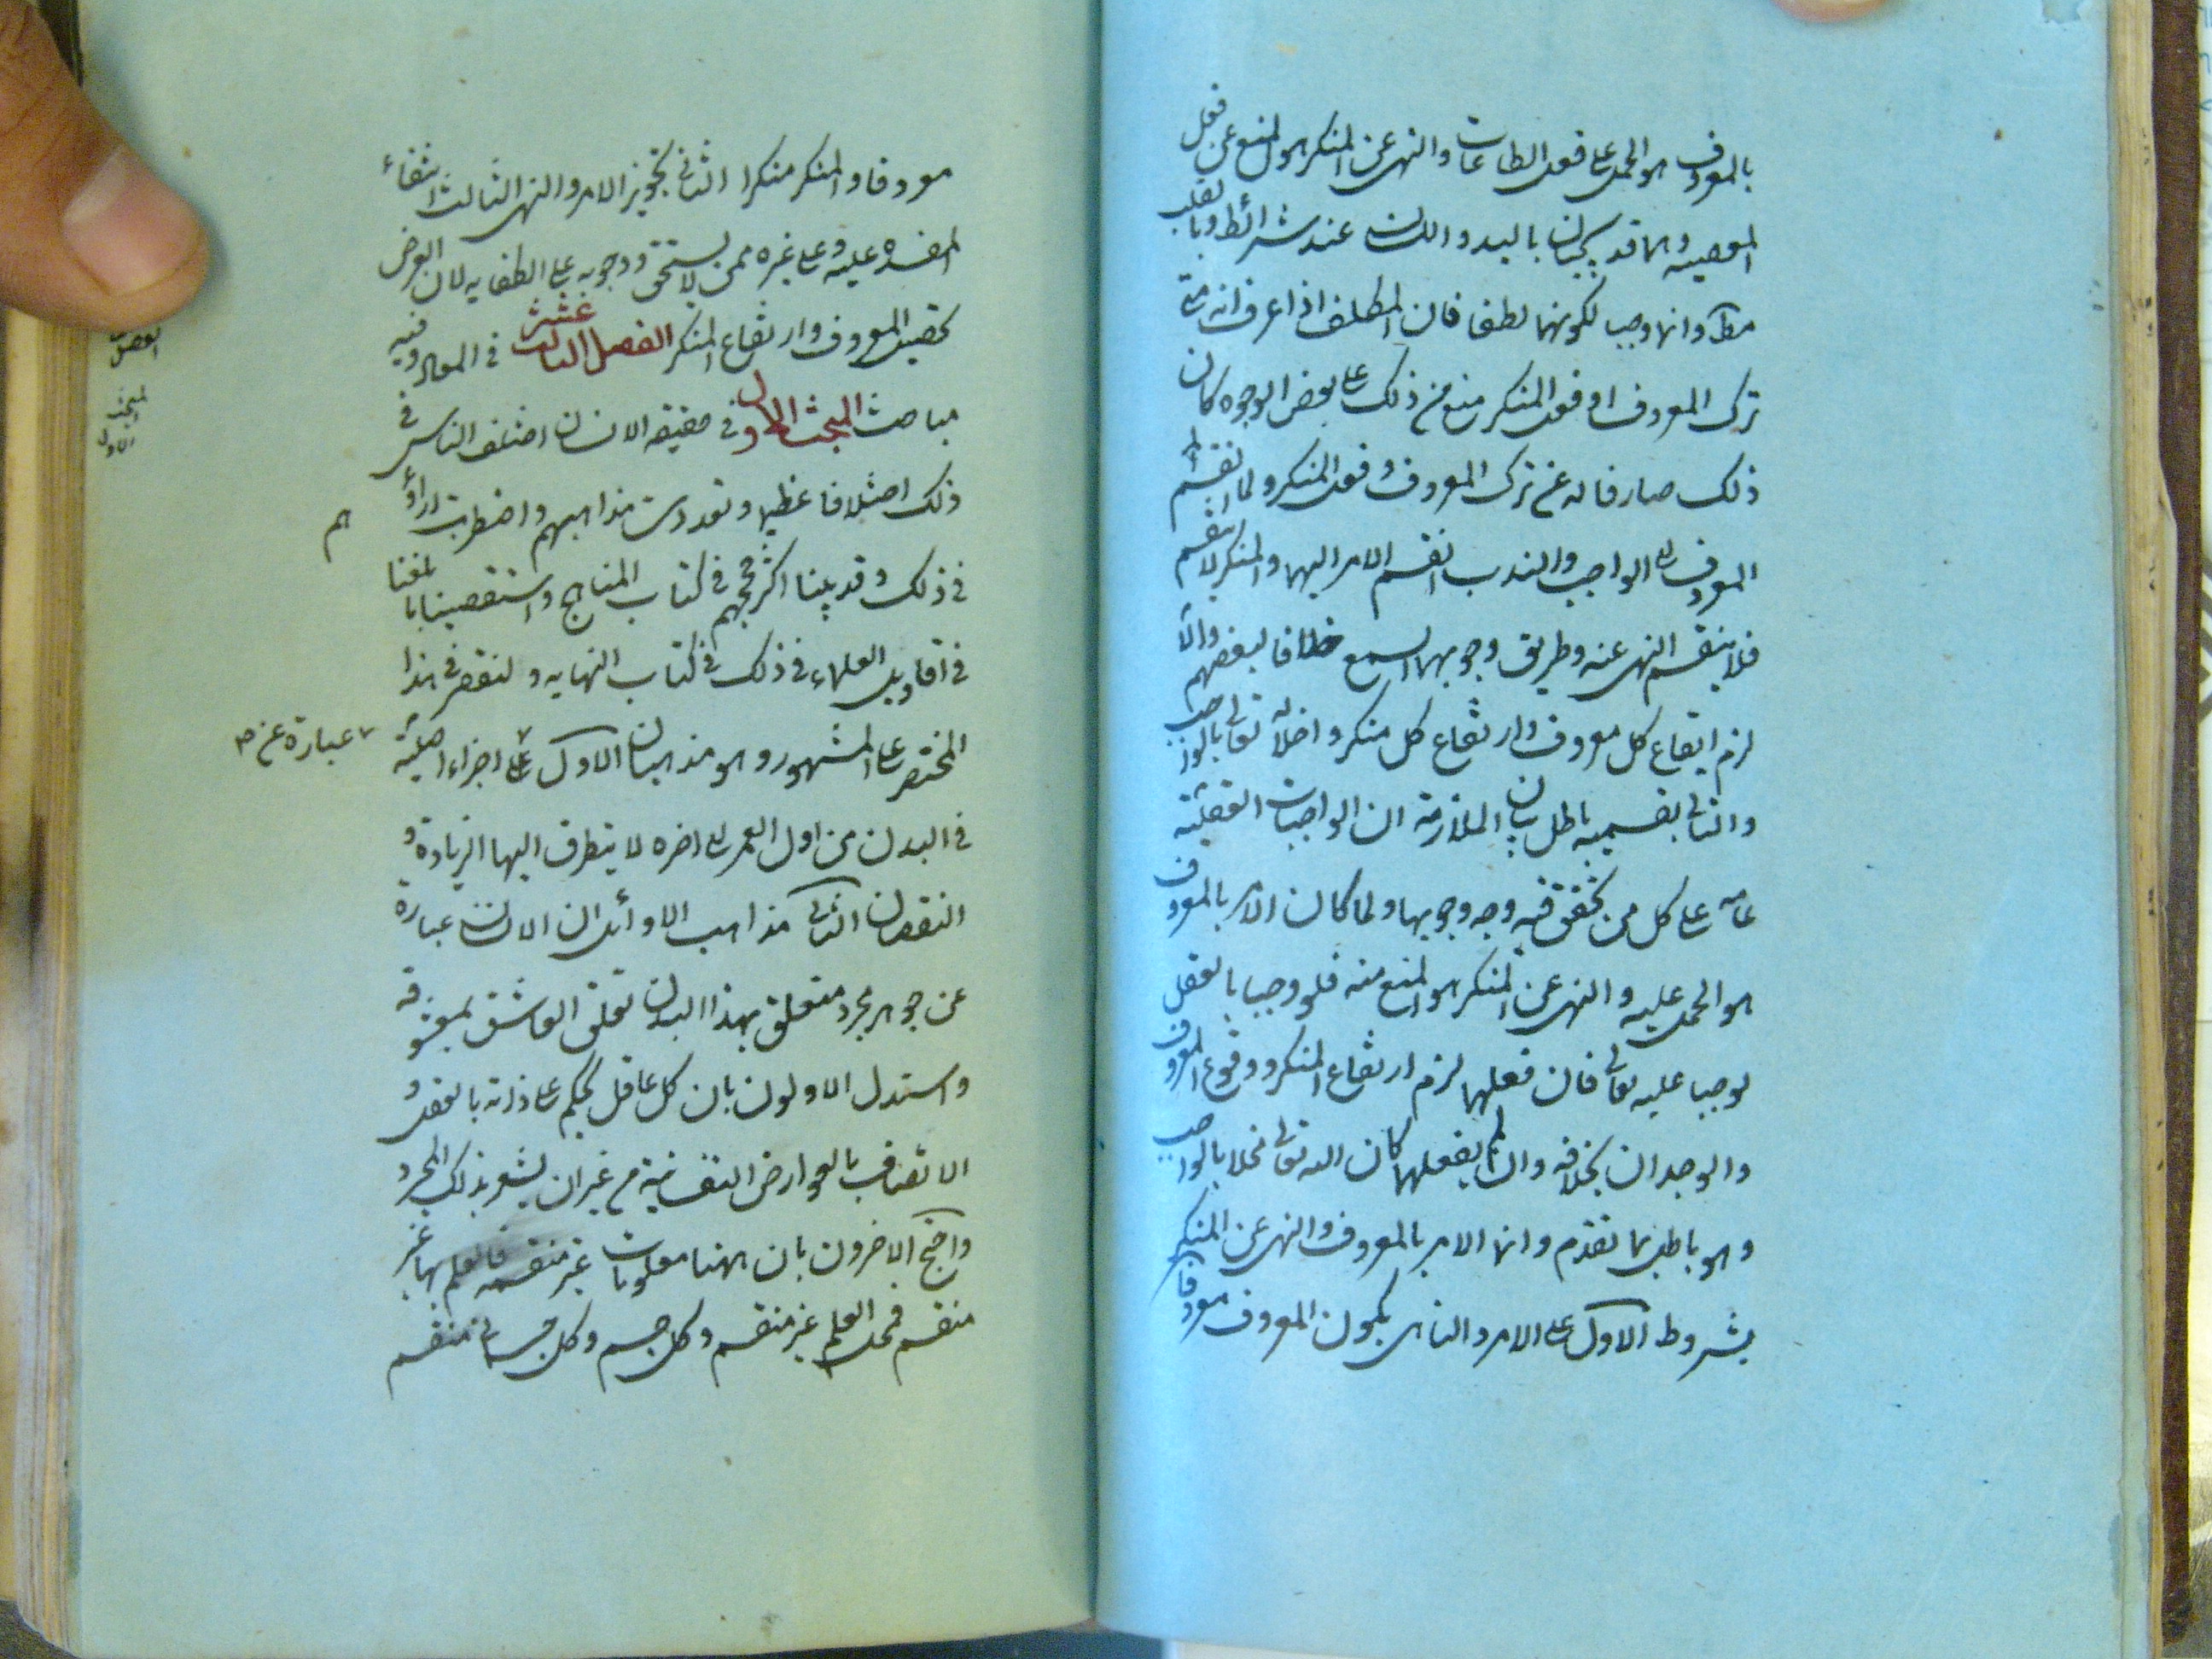 بالمعروف هو الحمل على فعل الطاعات والنهى عن المنكر هو المنع عن فعل
المعصيه وهما قد يجبان باليد واللسان عند شرائط وبالقلب
مطلقا وانما وجبا لكونهما لطفا فان المكلف اذا عرف انه متى
ترك المعروف او فعل المنكر منع من ذلك على بعض الوجوه كان
ذلك صارفا له عن ترك المعروف و فعل المنكر ولما انقسم
المعروف الى الواجب والندب انقسم الامر اليهما والمنكر لا ينقسم
فلا ينقسم النهى عنه وطريق وجوبهما السمع خلافا لبعضهم والا
لزم ايقاع كل معروف وارتفاع كل منكر و اخلاله تعالى بالواجب
والتالى بقسميه باطل بيان الملازمة ان الواجبات العقلية
عامه على كل من يتحقق فيه وجه وجوبها ولما كان الامر بالمعروف
هو الحمل عليه والنهى عن المنكر هو المنع منه فلو وجبا بالعقل
لوجبا عليه تعالى فان فعلهما لزم ارتفاع المنكر ووقوع المعروف
والوجدان بخلافه وان لم يفعلهما كان الله تعالى مخلا بالواجب
وهو باطل لما تقدم وانما الامر بالمعروف والنهى عن المنكر
بشروط الاول علم الامر والناهى بكون المعروف معروفا
معروفا والمنكر منكرا الثانى تجويز الامر والنهى الثالث انتفاء
المفسده عليه وعلى غيره ممن لا يستحق ووجوبه على الكفايه لان الغرض
تحصيل المعروف وارتفاع المنكر الفصل الثالث عشر فى المعاد وفيه
مباحث المبحث الاول فى حقيقه الانسان اختلف الناس فى
ذلك اختلافا عظيما وتعددت مذاهبهم واضطربت اراؤهم
فى ذلك وقد بينا اكثر حججهم فى كتاب المناهج واستقصينا بالغنا
فى اقاويل العلماء فى ذلك فى كتاب النهايه ولنقصر فى هذا
المختصر على المشهور وهو مذهبان الاول اجزاء اصلية
عبارة عن
فى البدن من اول العمر الى اخره لا يتطرق اليها الزيادة و
النقصان الثانى مذاهب الاوائل ان الانسان عبارة
عن جوهر مجرد متعلق بهذا البدن تعلق العاشق بمعشوقه
واستدل الاولون بان كل عاقل يحكم على ذاته بالفعل و
الاتصاف بالعوارض النفسانية من غير ان يشعر بذلك المجرد
واحتج الاخرون بان ههنا معلومات غير منقسمه فالعلم بها غير
منقسم فمحل العلم غير منقسم وكل جسم وكل جسمانى منقسم
الفصل
المبحث
الاول